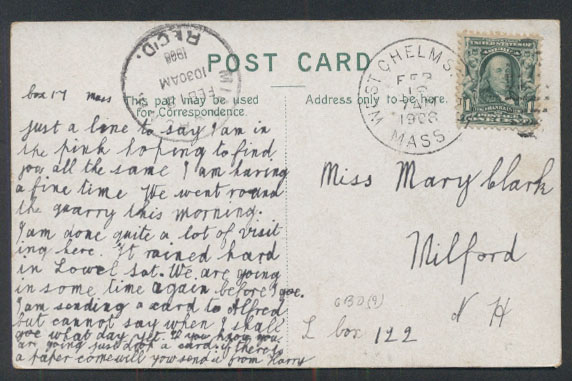 POST CARD
This part may be used
for Correspondence.
Address only to be here.
REC'D.
1908
10 30 AM
FEB
WEST CHELMSFORD
FEB
1908
MASS
UNITED STATES OF AMERICA
FRANKLIN
1
box 17 Mass
Just a line to say I am in
the pink hoping to find
you all the same I am having
a fine time We went round
the quarry this morning.
I am done quite a lot of visit
ing here. It rained hard
in Lowel sat. We are going
in some time again before I goe.
I am sending a card to Alfred
but cannot say when I shall
goe what day yet. If you know you
are going just drop a card. if there is
a paper come will you send it from Harry
Miss Mary Clark
Milford
N H
L box 122